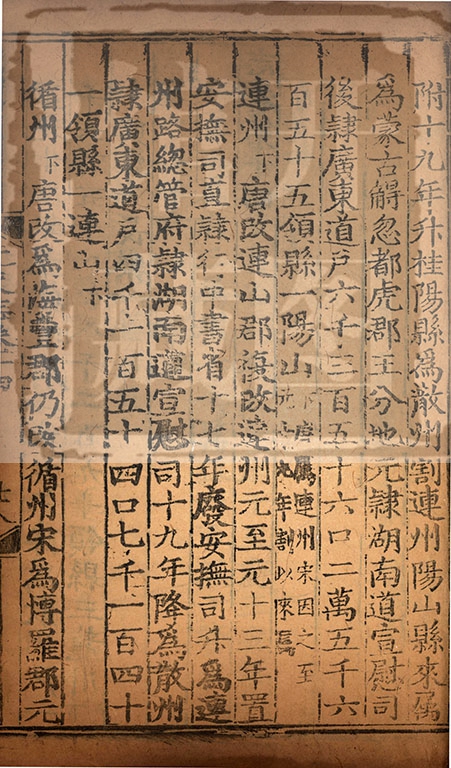 附十九年升桂陽縣爲散州割連州陽山縣來屬
爲蒙古䚟忽都虎郡王分地元隷湖南道宣慰司
後隷廣東道戶六千三百五十六口二萬五千六
百五十五領縣一陽山下唐屬連州宋因之至元十九年割以來屬
連州下唐改連山郡復改連州元至元十三年置
安撫司直隷行中書省十七年廢安撫司升爲連
州路總管府隷湖南道宣慰司十九年降爲散州
隷廣東道戶四千一百五十四口七千一百四十
一領縣一連山下
循州下唐改爲海豐郡仍改循州宋爲博羅郡元